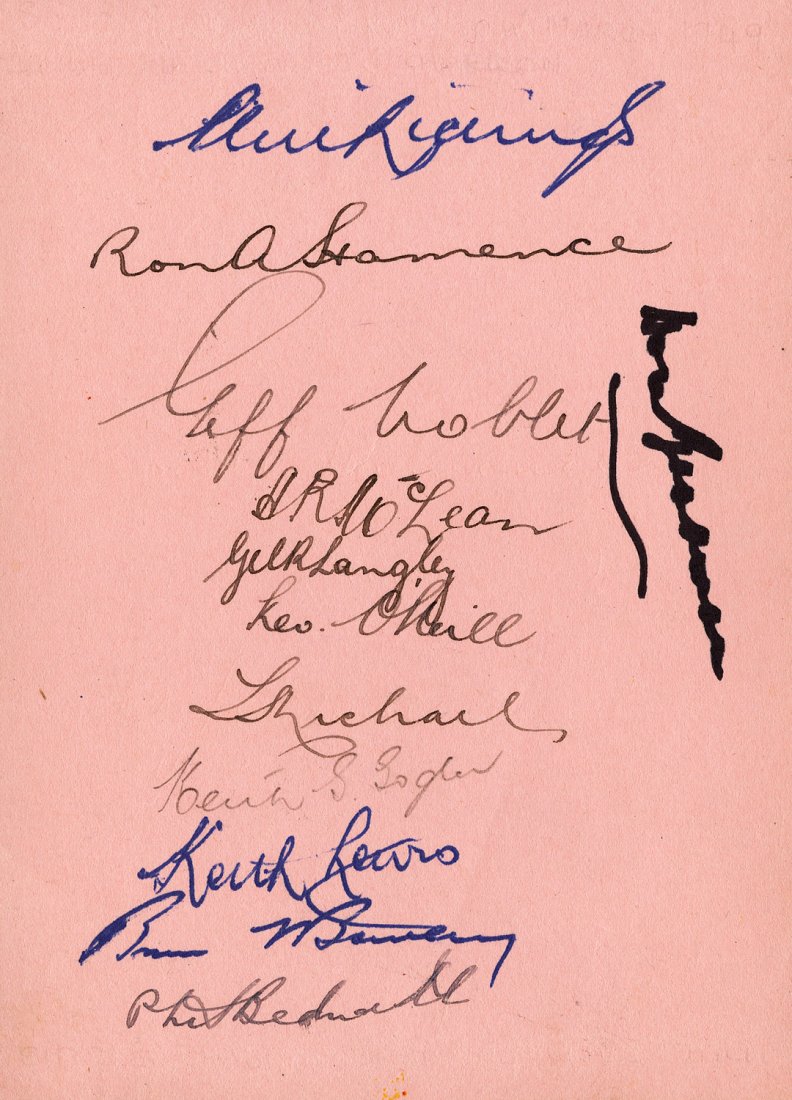 Phil Ridings
Ron A Hamence
Geff Noblet
A R M McLean
Gil R Langley
Kev. O'Neill
L Michael
Keith G Gogler
Keith Lewis
Bruce M Bowley
Phil L Bednall